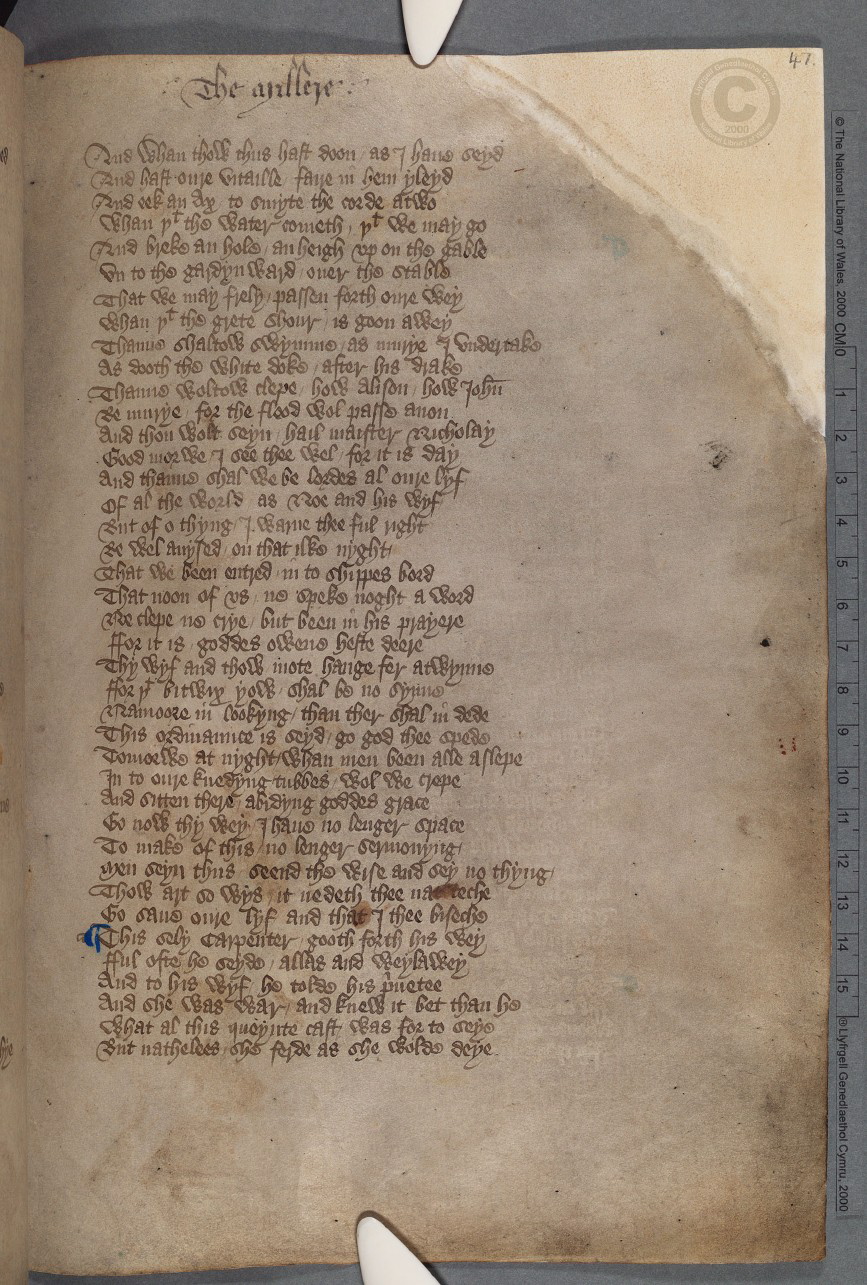 47.
The Millere
And whan thow thus hast doon / as I haue seyd
And hast oure vitaille / faire in hem yleyd
And eek an Ax / to smyte the corde atwo
Whan þt the water cometh / þt we may go
And breke an hole / an heigh vp on the gable
Vn to the gardyn ward / ouer the stable
That we may frely / passen forth oure wey
Whan þt the grete shour / is goon awey
Thanne shaltow swymme / as murye I vndertake
As dooth the white doke / after hir drake
Thanne woltow clepe / how Alison / how Iohn
Be murye / for the flood wol passe anon
And thou wolt seyn / hail maister Nicholay
Good morwe / I see thee wel / for it is day
And thanne shal we be lordes al oure lyf
Of al the world / as Noe and his wyf
But of o thyng / I warne thee ful right
Be wel auysed / on that ilke nyght
That we been entred / in to shippes bord
That noon of vs / ne speke noght a word
Ne clepe ne crye / but been in his prayere
ffor it is / goddes owene heste deere
Thy wyf and thow / mote hange fer atwynne
ffor þt bitwix yow / shal be no synne
Namoore in lookyng / than ther shal in dede
This ordinannce is seyd / go god thee spede
Tomorwe at nyght / whan men been alle aslepe
In to oure knedyng tubbes / wol we crepe
And sitten there / abidyng goddes grace
Go now thy wey / I haue no lenger space
To make of this / no lenger sermonyng
Men seyn thus / seend the wise and sey no thyng
Thow art so wys / it nedeth thee nat teche
Go saue oure lyf / and that I thee biseche
This sely Carpenter / gooth forth his wey
fful ofte he seyde / allas and weylawey
And to his wyf / he tolde his pryuetee
And she was war / and knew it bet than he
What al this queynte cast / was for to seye
But nathelees / she ferde as she wolde deye
© The National Library of Wales, 2000 CM 0 1 2 3 4 5 6 7 8 9 10 11 12 13 14 15 ® Llyfrgell Genedlaethol Cymru, 2000
C
2000